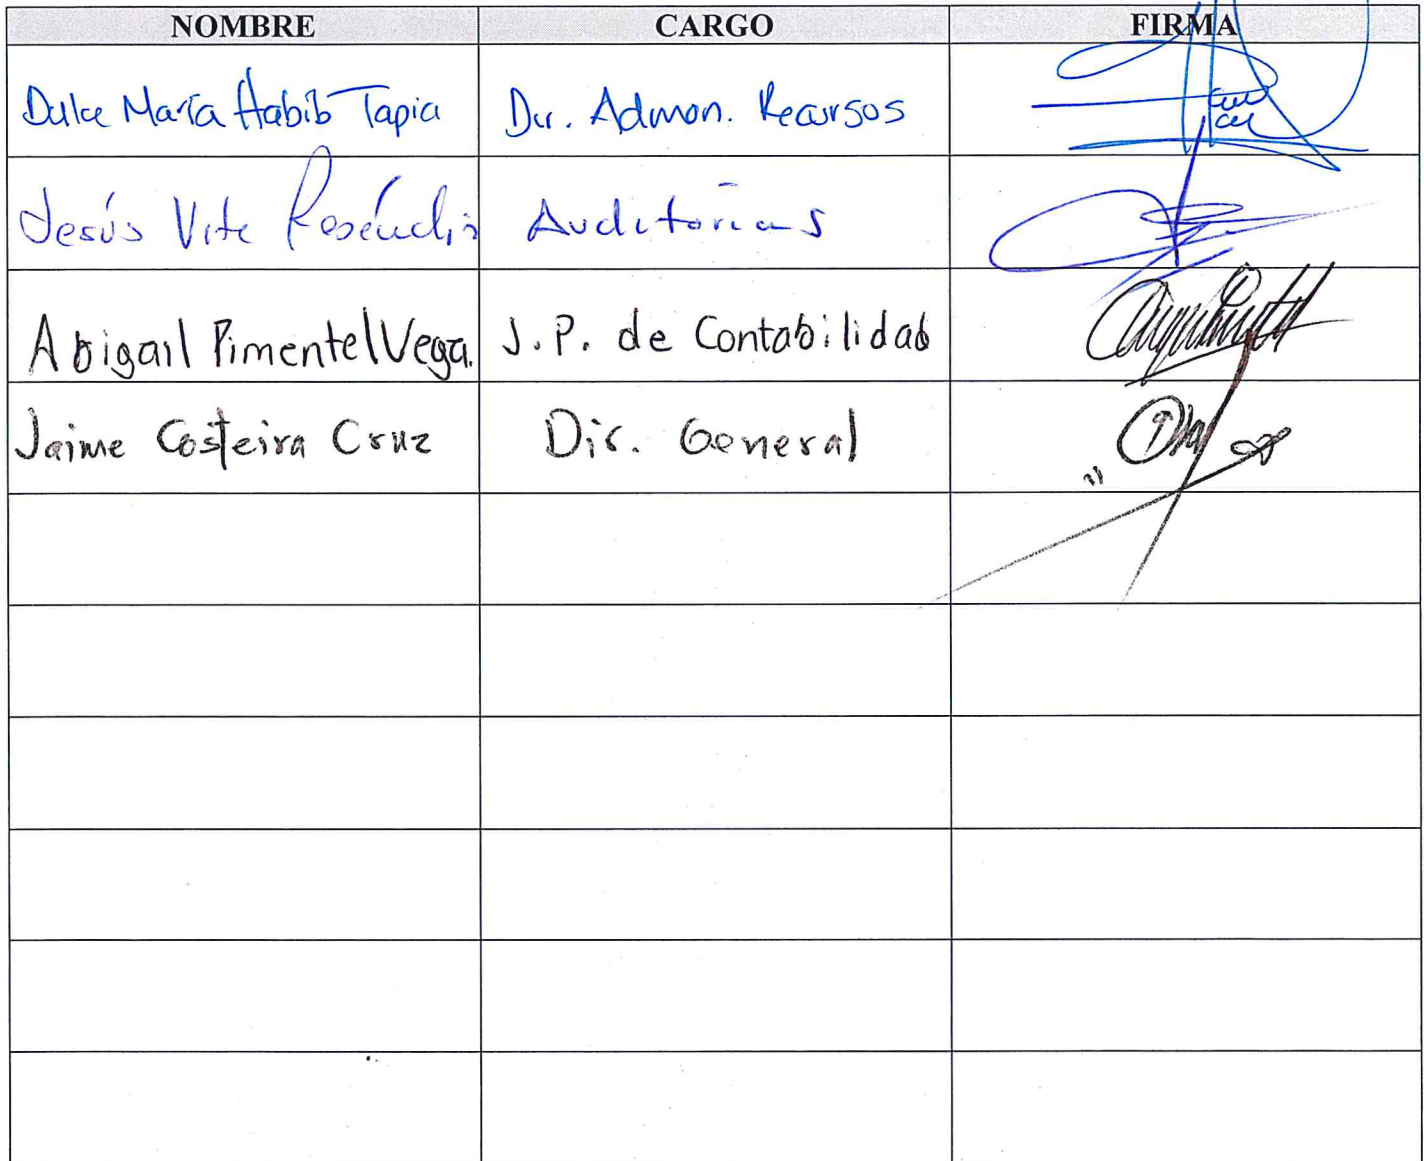 NOMBRE CARGO FIRMA
Dulce María Habib Tapia Dir. Admon. Recursos
Jesús Vite Reséndis Auditorias
Abigail Pimentel Vega. J.P. de Contabilidad
Jaime Costeira Cruz Dir. General